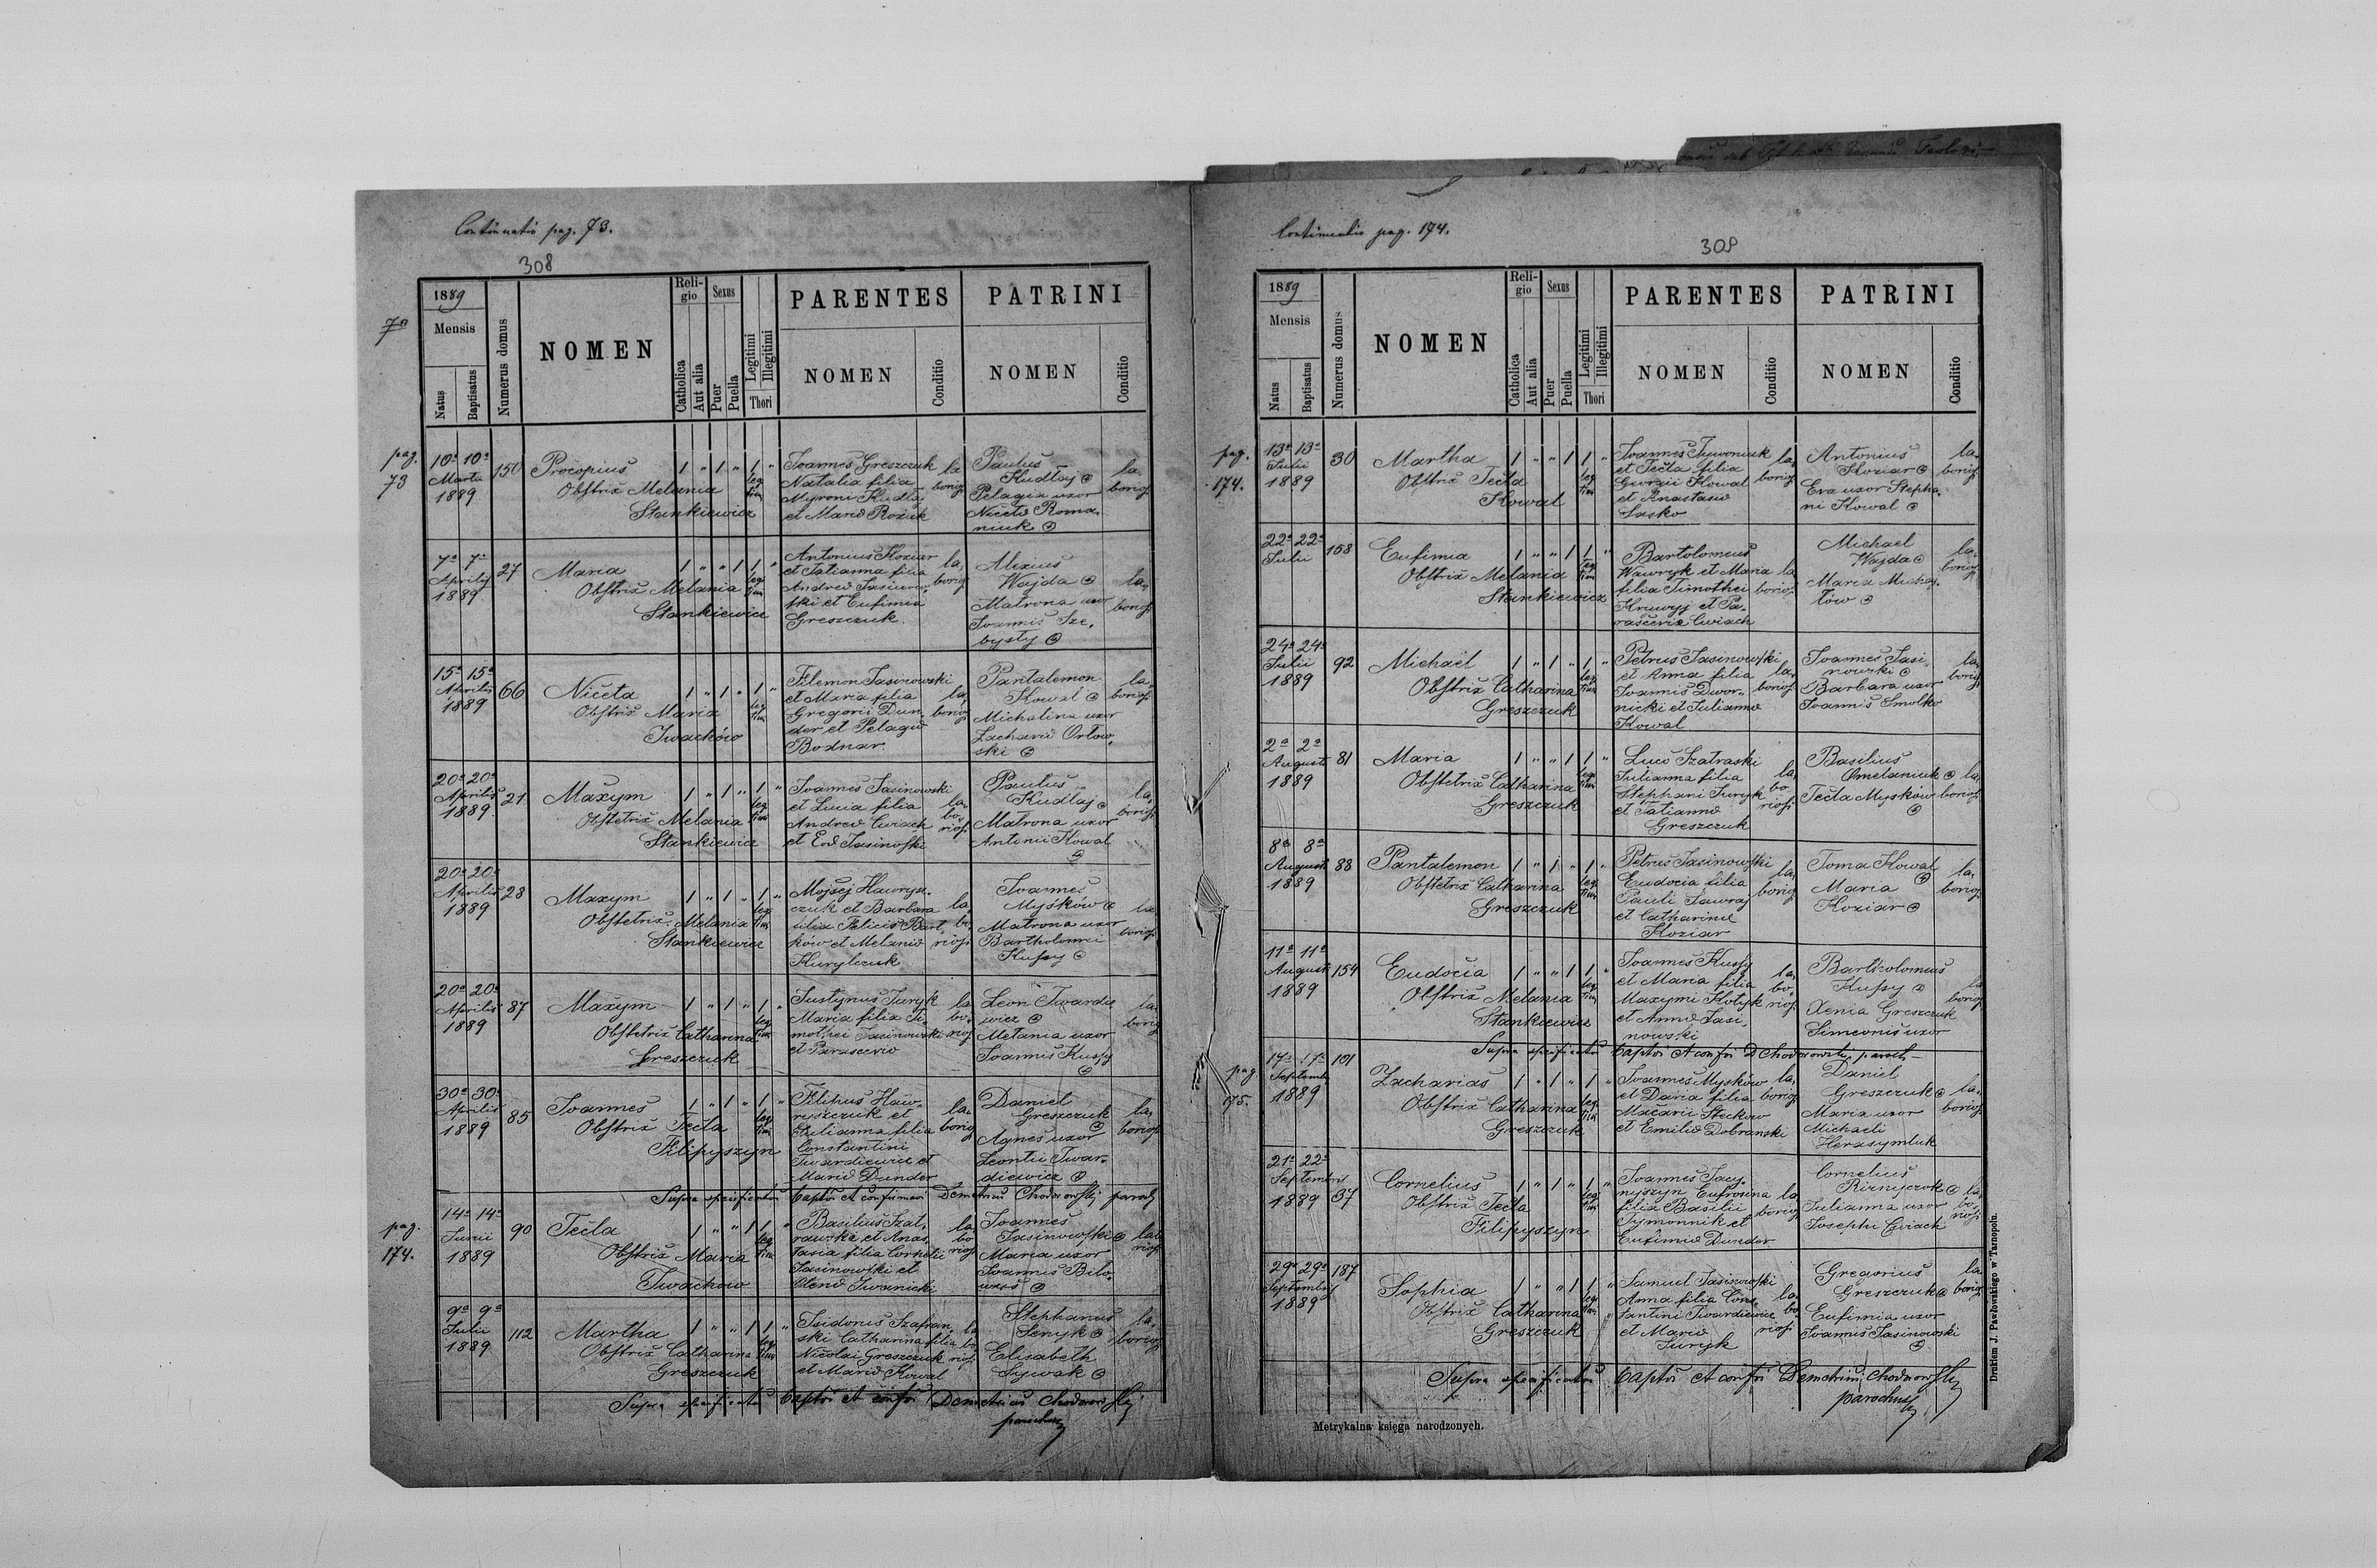 Continuatio pag. 73.
308
1889
Mensis
Natus
Baptisatus
Numerus domus
NOMEN
Religio
Catholica
Aut alia
Sexus
Puer
Puella
Legitimi
Illegitimi
Thori
PARENTES
NOMEN
Conditio
PATRINI
NOMEN
Conditio
pag. 73
10a 10a Martii 1889
150
Procopius
Obstrix Melania
Stankiewicz
1 " 1 " 1 "
legtim
Joannes Greszczuk
Natalia filia
Myroni Kudłaj
et Mariæ Roziuk
laborios.
Paulus
Kudłaj
Pelagia uxor
Nicetæ Roma-
niuk
laborios.
7a 7a Aprilis 1889
27
Maria
Obstrix Melania
Stankiewicz
1 " " 1 1 "
legtim
Antonius Koziar
et Tatianna filia
Andreæ Jasinow-
ski et Eufimia
Greszczuk.
laborios.
Alexius
Wajda
Matrona uxor
Joannis Sze-
bysty
laborios.
15a 15a Aprilis 1889
66
Niceta
Obstrix Maria
Iwachów
1 " 1 " 1 "
legtim
Filemon Jasinowski
et Maria filia
Gregorii Dun-
der et Pelagiæ
Bodnar.
laborios.
Pantalemon
Kowal
Michalina uxor
Zachariæ Orłow-
ski
laborios.
20a 20a Aprilis 1889
21
Maxym
Obstetrix Melania
Stankiewicz
1 " 1 " 1 "
legtim
Joannes Jasinowski
et Lucia filia
Andreæ Cwiach
et Evæ Jasinoski
laborios.
Paulus
Kudłaj
Matrona uxor
Antonii Kowal
laborios.
20a 20a Aprilis 1889
28
Maxym
Obstetrix Melania
Stankiewicz
1 " 1 " 1 "
legtim
Mojsej Hawrysz-
czuk et Barbara
filia Felicis Bart-
ków et Melaniæ
Kurylczuk
laborios.
Joannes
Myśków
Matrona uxor
Bartholomei
Kussy
laborios.
20a 20a Aprilis 1889
87
Maxym
Obstetrix Catharina
Greszczuk
1 " 1 " 1 "
legtim
Justynus Juryk
Maria filia Ti-
mothei Jasinowski
et Parasceviæ
laborios.
Leon Twardie-
wicz
Melania uxor
Joannis Kussy
laborios.
30a 30a Aprilis 1889
85
Joannes
Obstrix Tecla
Filipyszyn
1 " 1 " 1 "
legtim
Filipus Haw-
ryszczuk et
Julianna filia
Constantini
Twardiewicz et
Mariæ Dunder
laborios.
Daniel
Greszczuk
Agnes uxor
Leontii Twar-
diewicz
laborios.
Demetrius Chodorowskij paroch
pag. 174.
14a 14a Junii 1889
90
Tecla
Obstrix Maria
Iwachow
1 " " 1 1 "
legtim
Basilius Szat-
rawski et Anas-
tasia filia Cornelii
Jasinowski et
Olenæ Iwanicki
laborios.
Joannes
Jasinowski
Maria uxor
Joannis Bilo-
was
laborios.
9a 9a Julii 1889
112
Martha
Obstrix Catharina
Greszczuk
1 " " 1 1 "
legtim
Isidorus Szafran-
ski Catharina filia
Nicolai Greszczuk
et Mariæ Kowal
laborios.
Stephanus
Senyk
Elisabeth
Sywak
laborios.
Demetrius Chodorowskij
parochus
Continuatio pag. 174.
309
1889
Mensis
Natus
Baptisatus
Numerus domus
NOMEN
Religio
Catholica
Aut alia
Sexus
Puer
Puella
Legitimi
Illegitimi
Thori
PARENTES
NOMEN
Conditio
PATRINI
NOMEN
Conditio
pag. 174.
13a 13a Julii 1889
30
Martha
Obstrix Tecla
Kowal
1 " " 1 1 "
legtim
Joannes Tywoniuk
et Tecla filia
Georgii Kowal
et Anastasiæ
Sasko
laborios.
Antonius
Koziar
Eva uxor Stepha-
ni Kowal
laborios.
22a 22a Julii
158
Eufimia
Obstrix Melania
Stankiewicz
1 " " 1 1 "
legtim
Bartolomeus
Wawryk et Maria
filia Timothei
Krywyj et Pa-
rasceviæ Cwiach
laborios.
Michael
Wajda
Maria Micha-
łów
laborios.
24a 24a Julii 1889
92
Michaël
Obstrix Catharina
Greszczuk
1 " 1 " 1 "
legtim
Petrus Jasinowski
et Anna filia
Joannis Dwor-
nicki et Juliannæ
Kowal
laborios.
Joannes Jasi-
nowski
Barbara uxor
Joannis Smolko
laborios.
2a 2a Augusti 1889
81
Maria
Obstetrix Catharina
Greszczuk
1 " " 1 1 "
legtim
Luca Szatraski
Julianna filia
Stephani Juryk
et Tatiannæ
Greszczuk
laborios.
Basilius
Omelaniuk
Tecla Myśków
laborios.
8a 8a Augusti 1889
88
Pantalemon
Obstetrix Catharina
Greszczuk
1 " 1 " 1 "
legtim
Petrus Jasinowski
Eudocia filia
Pauli Jawraj
et Catharinæ
Koziar
laborios.
Toma Kowal
Maria
Koziar
laborios.
11a 11a Augusti 1889
154
Eudocia
Obstrix Melania
Stankiewicz
1 " " 1 1 "
legtim
Joannes Kussy
et Maria filia
Maxymi Kotyk
et Annæ Jasi-
nowski
laborios.
Bartholomeus
Kussy
Xenia Greszczuk
Simeonis uxor
laborios.
D Chodorowskij paroch
pag. 175.
17a 17a Septembr 1889
101
Zacharias
Obstrix Catharina
Greszczuk
1 " 1 " 1 "
legtim
Joannes Myskow
et Daria filia
Macarii Steckow
et Emiliæ Dobranski
laborios.
Daniel
Greszczuk
Maria uxor
Michaeli
Herasymluk
laborios.
21a 22a Septembris 1889
37
Cornelius
Obstrix Tecla
Filipyszyn
1 " 1 " 1 "
legtim
Joannes Jacy-
nyszyn Eufrosina
filia Basilii
Tymonnik et
Eufimiæ Dunder
laborios.
Cornelius
Riznyczok
Julianna uxor
Josephi Cwiach
laborios.
29a 29a Septembris 1889
187
Sophia
Obstrix Catharina
Greszczuk
1 " " 1 1 "
legtim
Samuel Jasinowski
Anna filia Cons-
tantini Twardiewicz
et Mariæ
Juryk
laborios.
Gregorius
Greszczuk
Eufimia uxor
Joannis Jasinowski
laborios.
Demetrius Chodorowskij
parochus
Metrykalna księga narodzonych.
Drukiem J. Pawłowskiego w Tarnopolu.